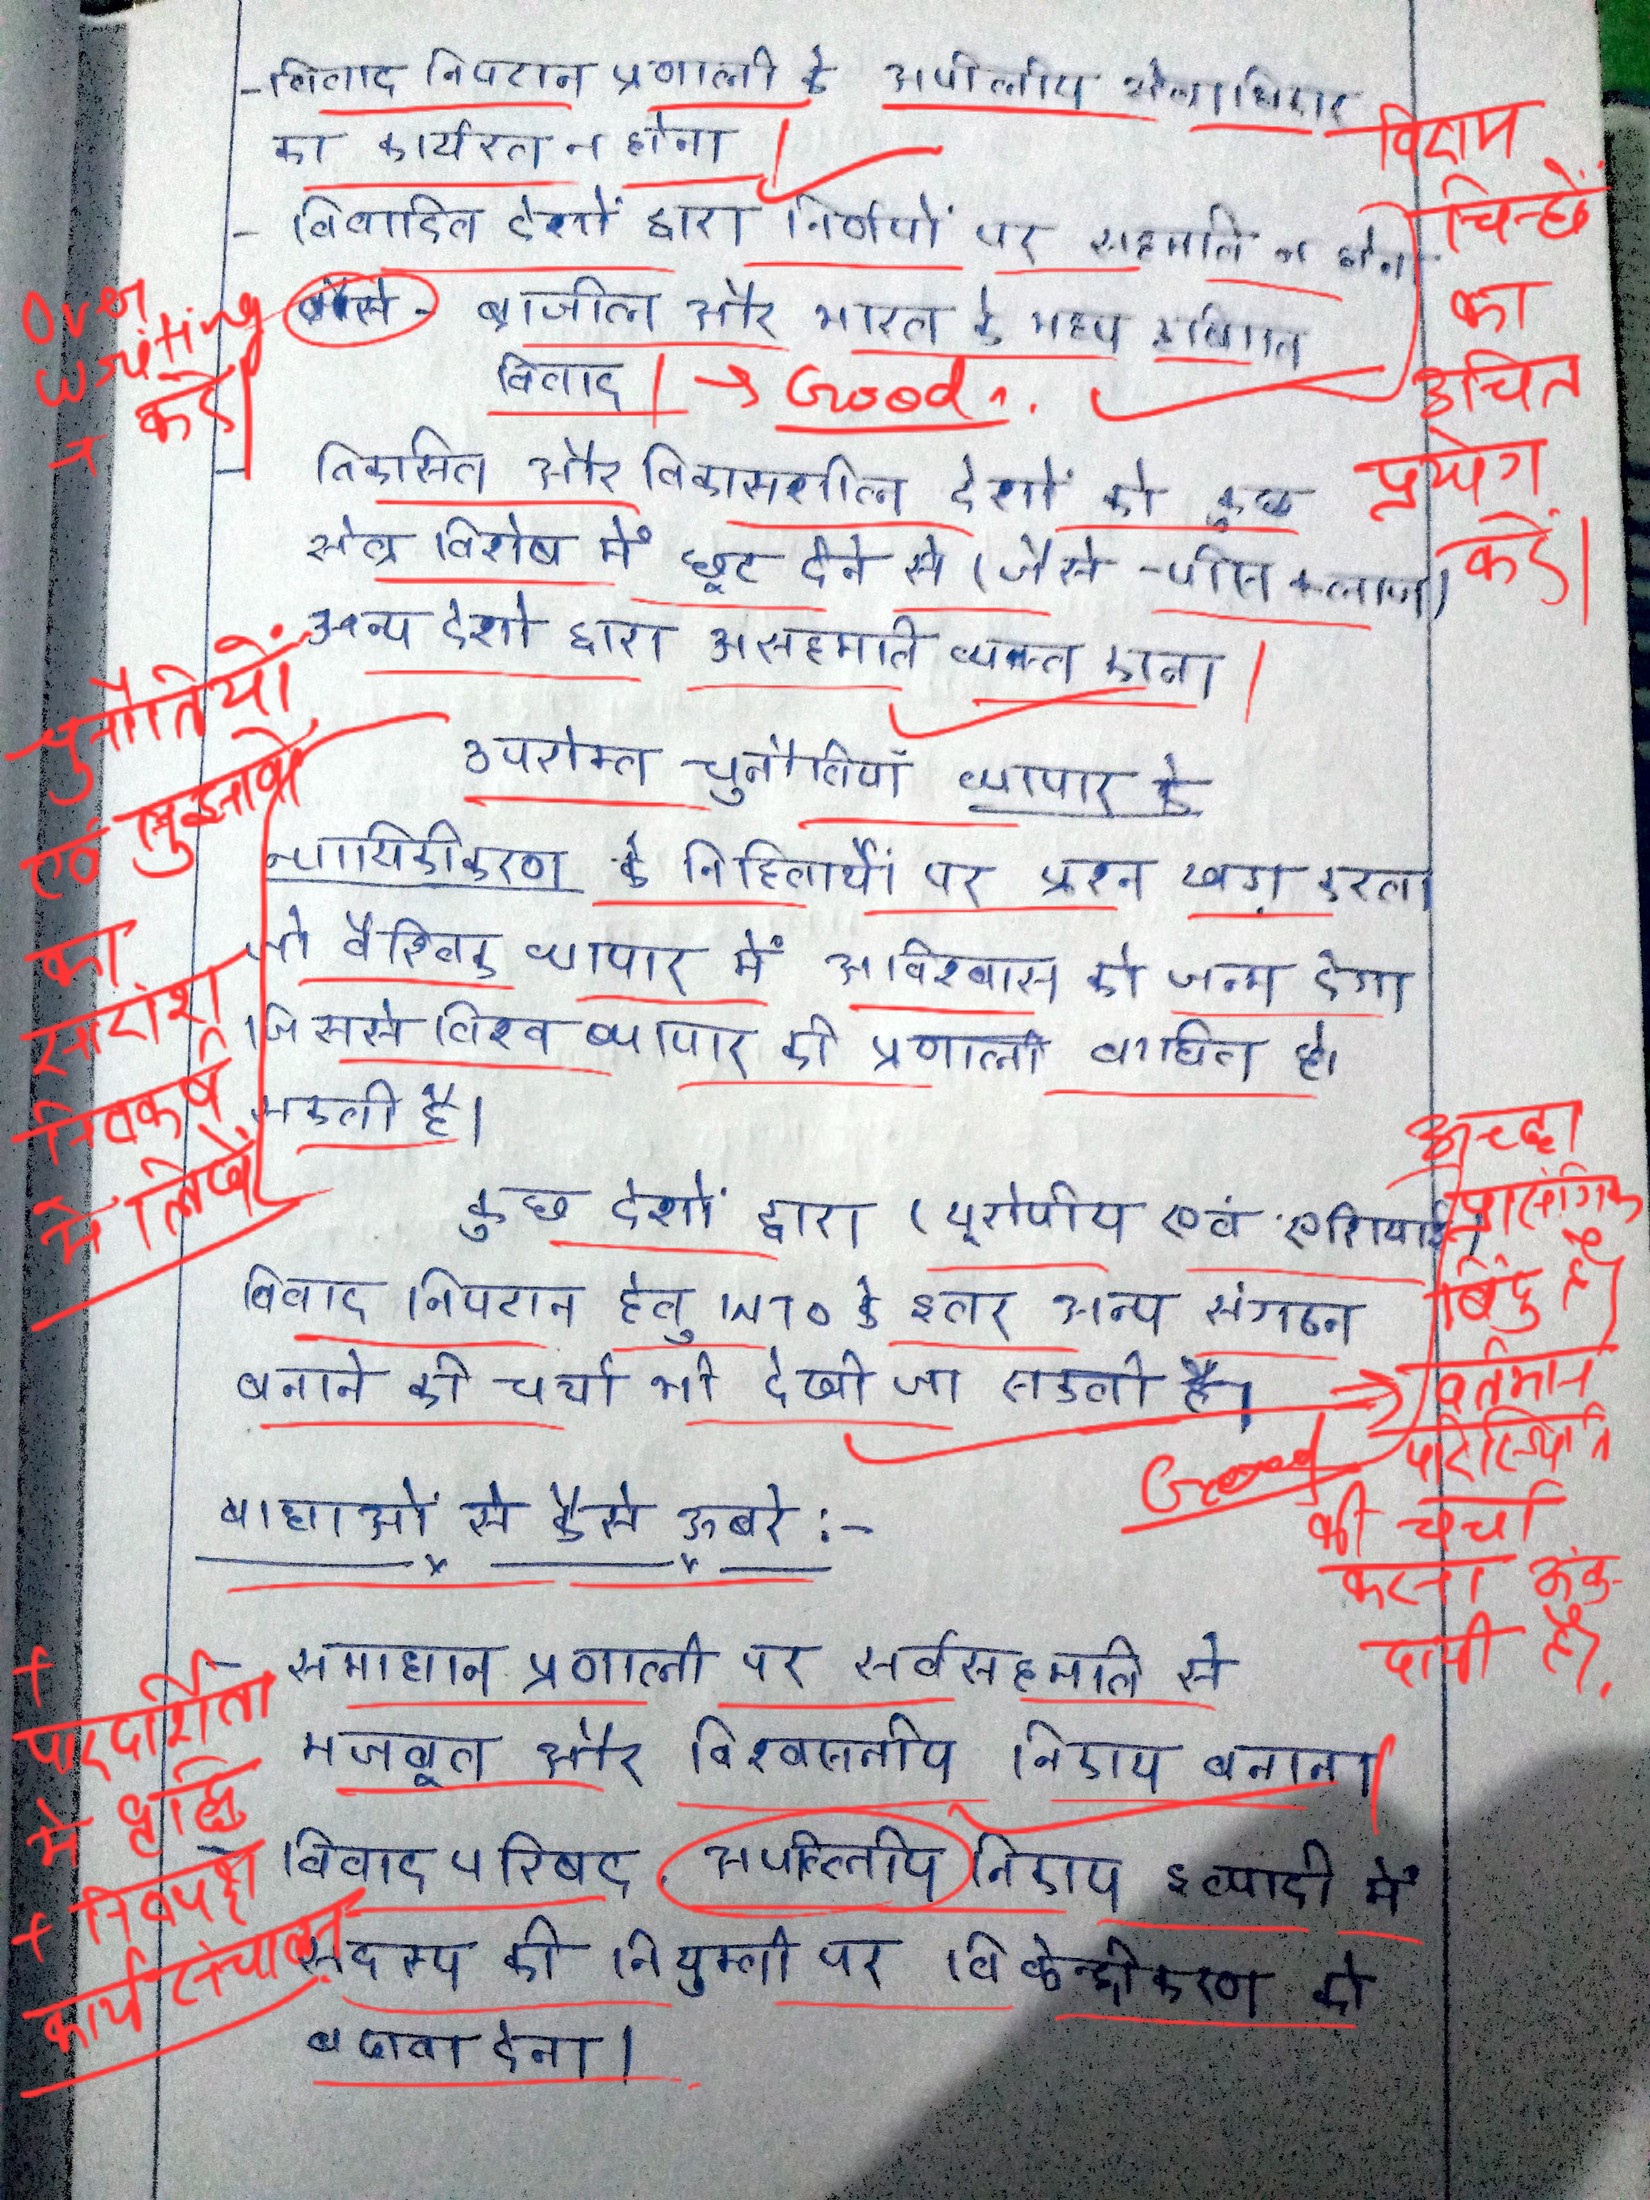 - विवाद निपटान प्रणाली के अपीलीय क्षेत्राधिकार
का कार्यरत न होना
- विवादित देशों द्वारा निर्णयों पर सहमति न होना
जैसे - ब्राजील और भारत के मध्य
विवाद। → Good.
विकसित और विकासशील देशों को कुछ
क्षेत्र विशेष में छूट देने से (जैसे - पीस क्लाज)
अन्य देशो द्वारा असहमति व्यक्त करना।
उपरोक्त चुनौतियाँ व्यापार के
न्यायिकीकरण के निहितार्थों पर प्रश्न खड़ा करता
जो वैश्विक व्यापार में अविश्वास को जन्म देगा
जिससे विश्व व्यापार की प्रणाली बाधित हो
सकती है।
कुछ देशों द्वारा (यूरोपीय एवं एशियाई)
विवाद निपटान हेतु WTO के इतर अन्य संगठन
बनाने की चर्चा भी देखी जा सकती है।
Good
बाधाओं से कैसे ऊबरे :-
- समाधान प्रणाली पर सर्वसहमति से
मजबूत और विश्वसनीय निकाय बनाना।
- विवाद परिषद, अपीलीय निकाय इत्यादी में
सदस्य की नियुक्ती पर विकेन्द्रीकरण को
बढावा देना।
विराम
चिन्हों
का
उचित
प्रयोग
करें।
Over
writing
न करें।
चुनौतियों
एवं सुझावों
का
सारांश
निष्कर्ष
में लिखें
अच्छा
प्रासंगिक
बिंदु है।
वर्तमान
परिस्थिति
की चर्चा
करना अंक-
दायी है।
+
पारदर्शिता
में वृद्धि
+ निष्पक्ष
कार्य संचालन